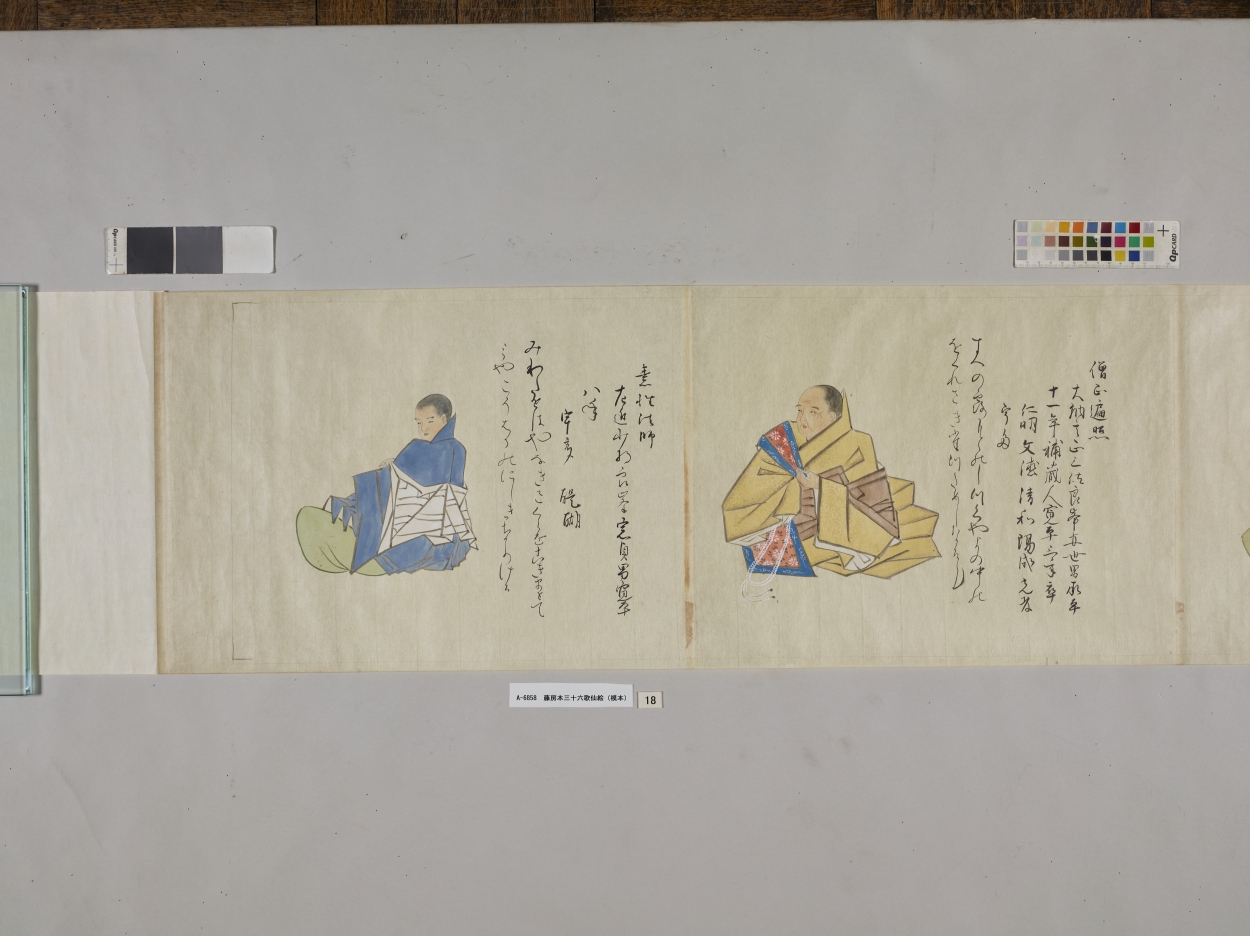 僧正遍照
大納言正三位良岑安世男承平
十一年補蔵人寛平二年卒
仁明 文徳 清和 陽成 光孝
宇多
すゑの露もとのしつくやよの中の
をくれさきたつためしなるらむ
素性法師
左近将監良岑宗貞男寛平
八年
宇多 醍醐
みわたせはやなきさくらをこきませて
みやこそはるのにしきなりける
A-6858 藤房本三十六歌仙絵(模本)
18
QPCARD